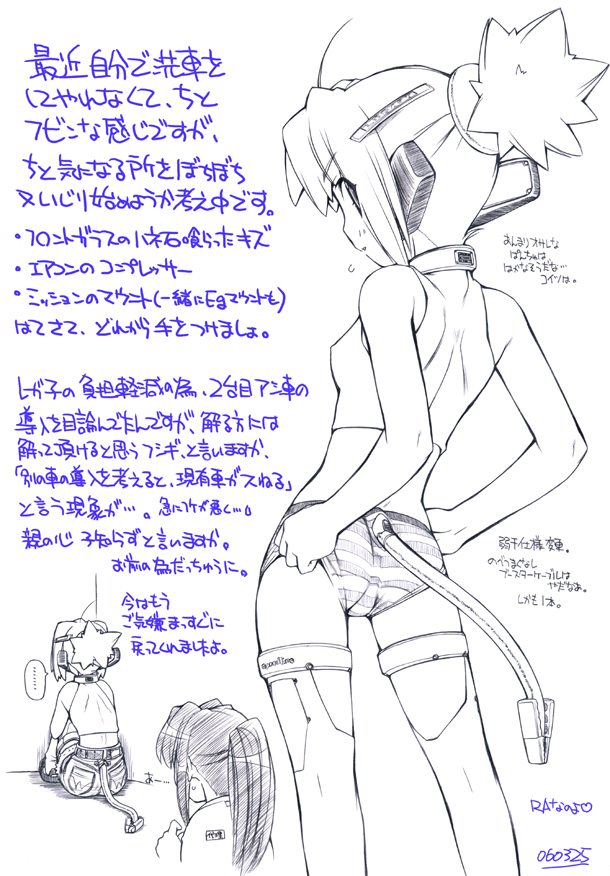 最近自分で洗車を
してやれなくて、ちと
フビンな感じですが、
ちと気になる所をぼちぼち
又いじり始めようか考え中です。
・フロントガラスのハネ石喰らったキズ
・エアコンのコンプレッサー
・ミッションのマウント(一緒にEgマウントも)
はてさて、どれから手をつけましょ。
レガ子の負担軽減の為、2台目アシ車の
導入を目論んでたんですが、解る方には
解って頂けると思うフシギ、と言いますか、
「別の車の導入を考えると、現有車がスねる」
と言う現象が…。急にフケが悪く…。
親の心子知らずと言いますか。
お前の為だっちゅうに。
今はもう
ご気嫌まっすぐに
戻ってくれましたよ。
あんまりオサレな
ぱんちゅは
はかなそうだな…
コイツは。
弱干仕様変更。
のべつまくなし
ブースターケーブルは
やだなぁ。
しかも1本。
………
あー…
代理
RAなのよ♡
060325